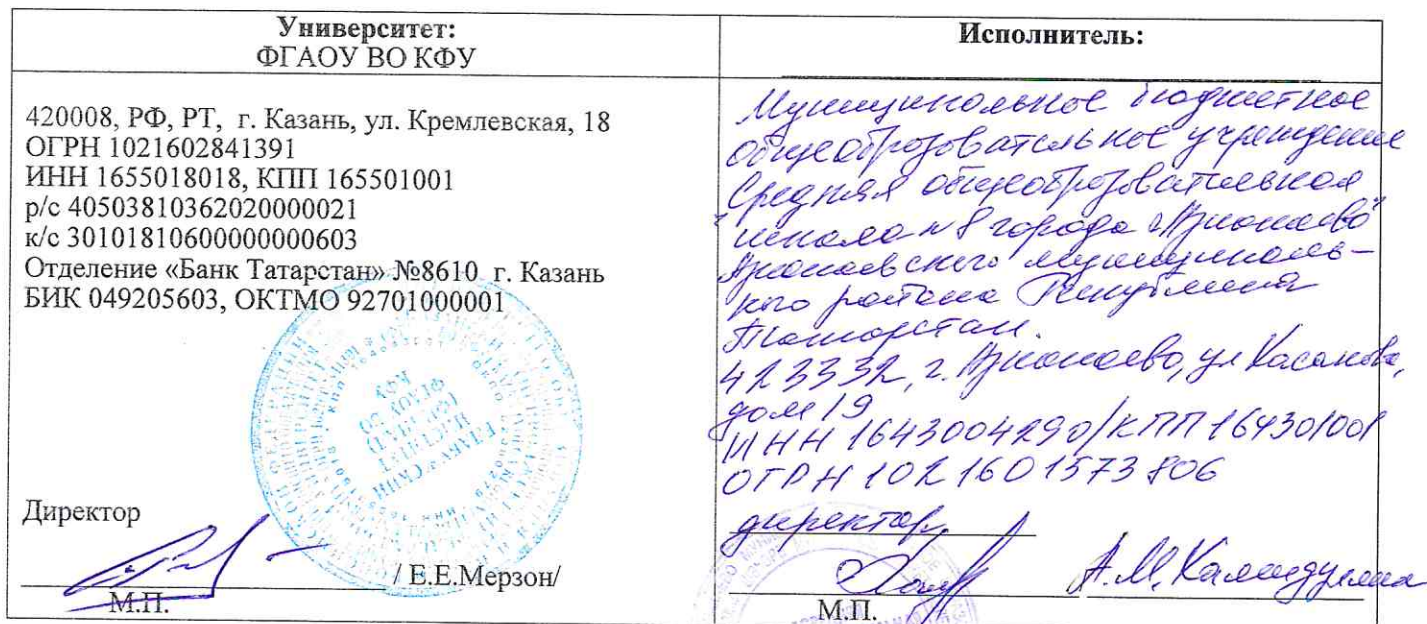 Университет:
ФГАОУ ВО КФУ
420008, РФ, РТ, г. Казань, ул. Кремлевская, 18
ОГРН 1021602841391
ИНН 1655018018, КПП 165501001
р/с 40503810362020000021
к/с 30101810600000000603
Отделение «Банк Татарстан» №8610 г. Казань
БИК 049205603, ОКТМО 92701000001
Директор
/ Е.Е.Мерзон/
М.П.
Исполнитель:
Муниципальное бюджетное
общеобразовательное учреждение
"Средняя общеобразовательная
школа №8 города Азнакаево"
Азнакаевского муниципаль-
ного района Республики
Татарстан.
423332, г. Азнакаево, ул Хасанова,
дом 19
ИНН 1643004290/КПП 164301001
ОГРН 1021601573806
директор
М.П.